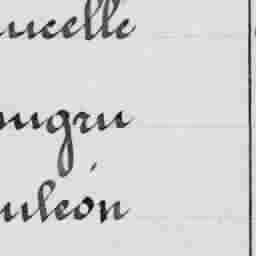 ucelle
ugru
uléon